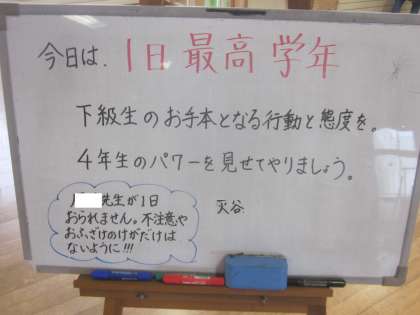 今日は、1日最高学年
下級生のお手本となる行動と態度を。
4年生のパワーを見せてやりましょう。
先生が1日
おられません。不注意や
おふざけのけがだけは
ないように!!!
灰谷